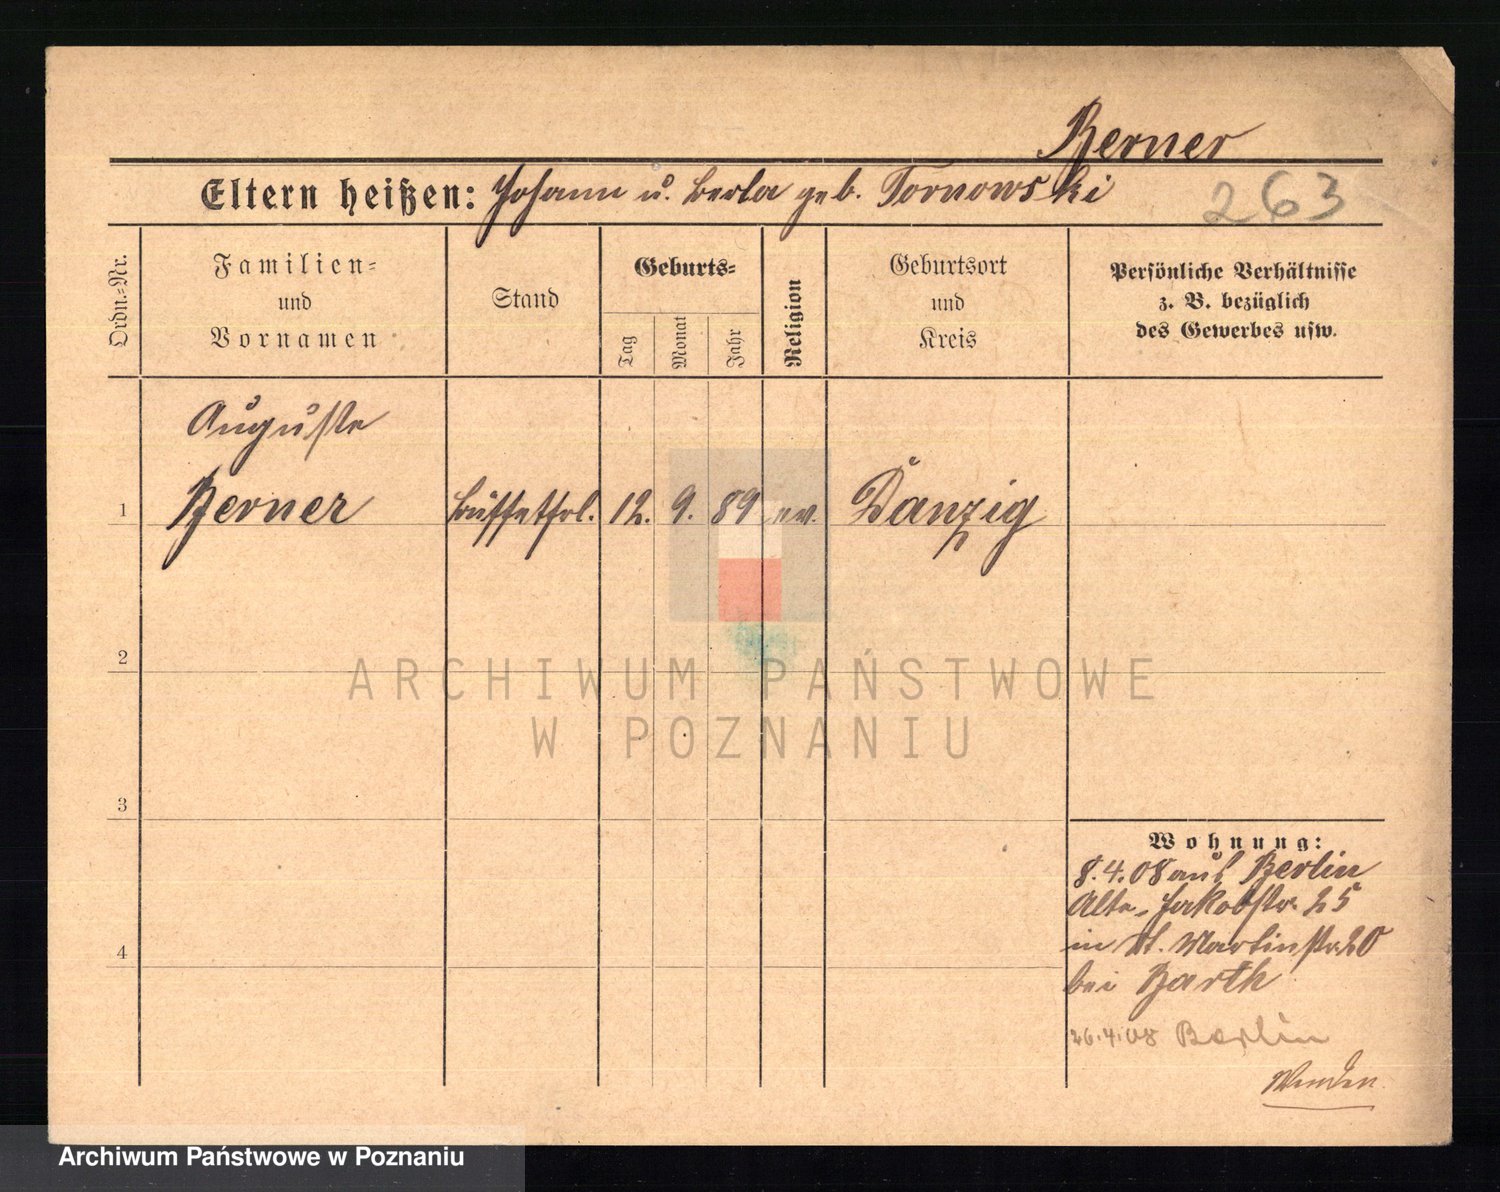 Berner
Eltern heißen: Johann u. Berta geb. Tornowski
263
Ordn.-Nr.
Familien-
und
Vornamen
Stand
Geburts-
Tag
Monat
Jahr
Religion
Geburtsort
und
Kreis
Persönliche Verhältnisse
z. B. bezüglich
des Gewerbes usw.
Auguste
1 Berner Buffetfrl. 12. 9. 89 ev. Danzig
2
3
4
ARCHIWUM PAŃSTWOWE
W POZNANIU
Wohnung:
8.4.08 aus Berlin
Alte-Jakobstr. 25
in St. Martinstr. 20
bei Barth
26.4.08 Berlin
Wenden
Archiwum Państwowe w Poznaniu